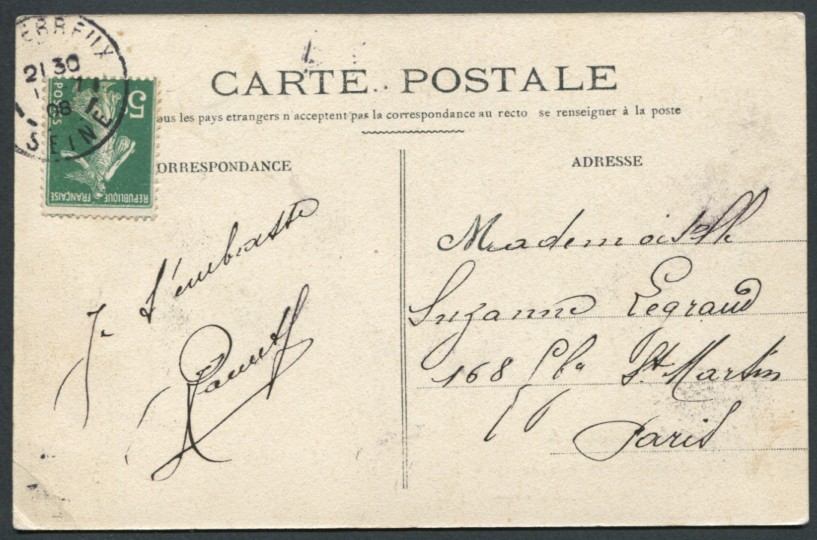 ERREUX
21 30
08
SEINE
5
POSTES
REPUBLIQUE FRANÇAISE
CARTE POSTALE
ous les pays etrangers n'acceptent pas la correspondance au recto se renseigner à la poste
ORRESPONDANCE
ADRESSE
Je t'embrasse
Mademoiselle
Suzanne Legrand
168 Fbg St Martin
Paris